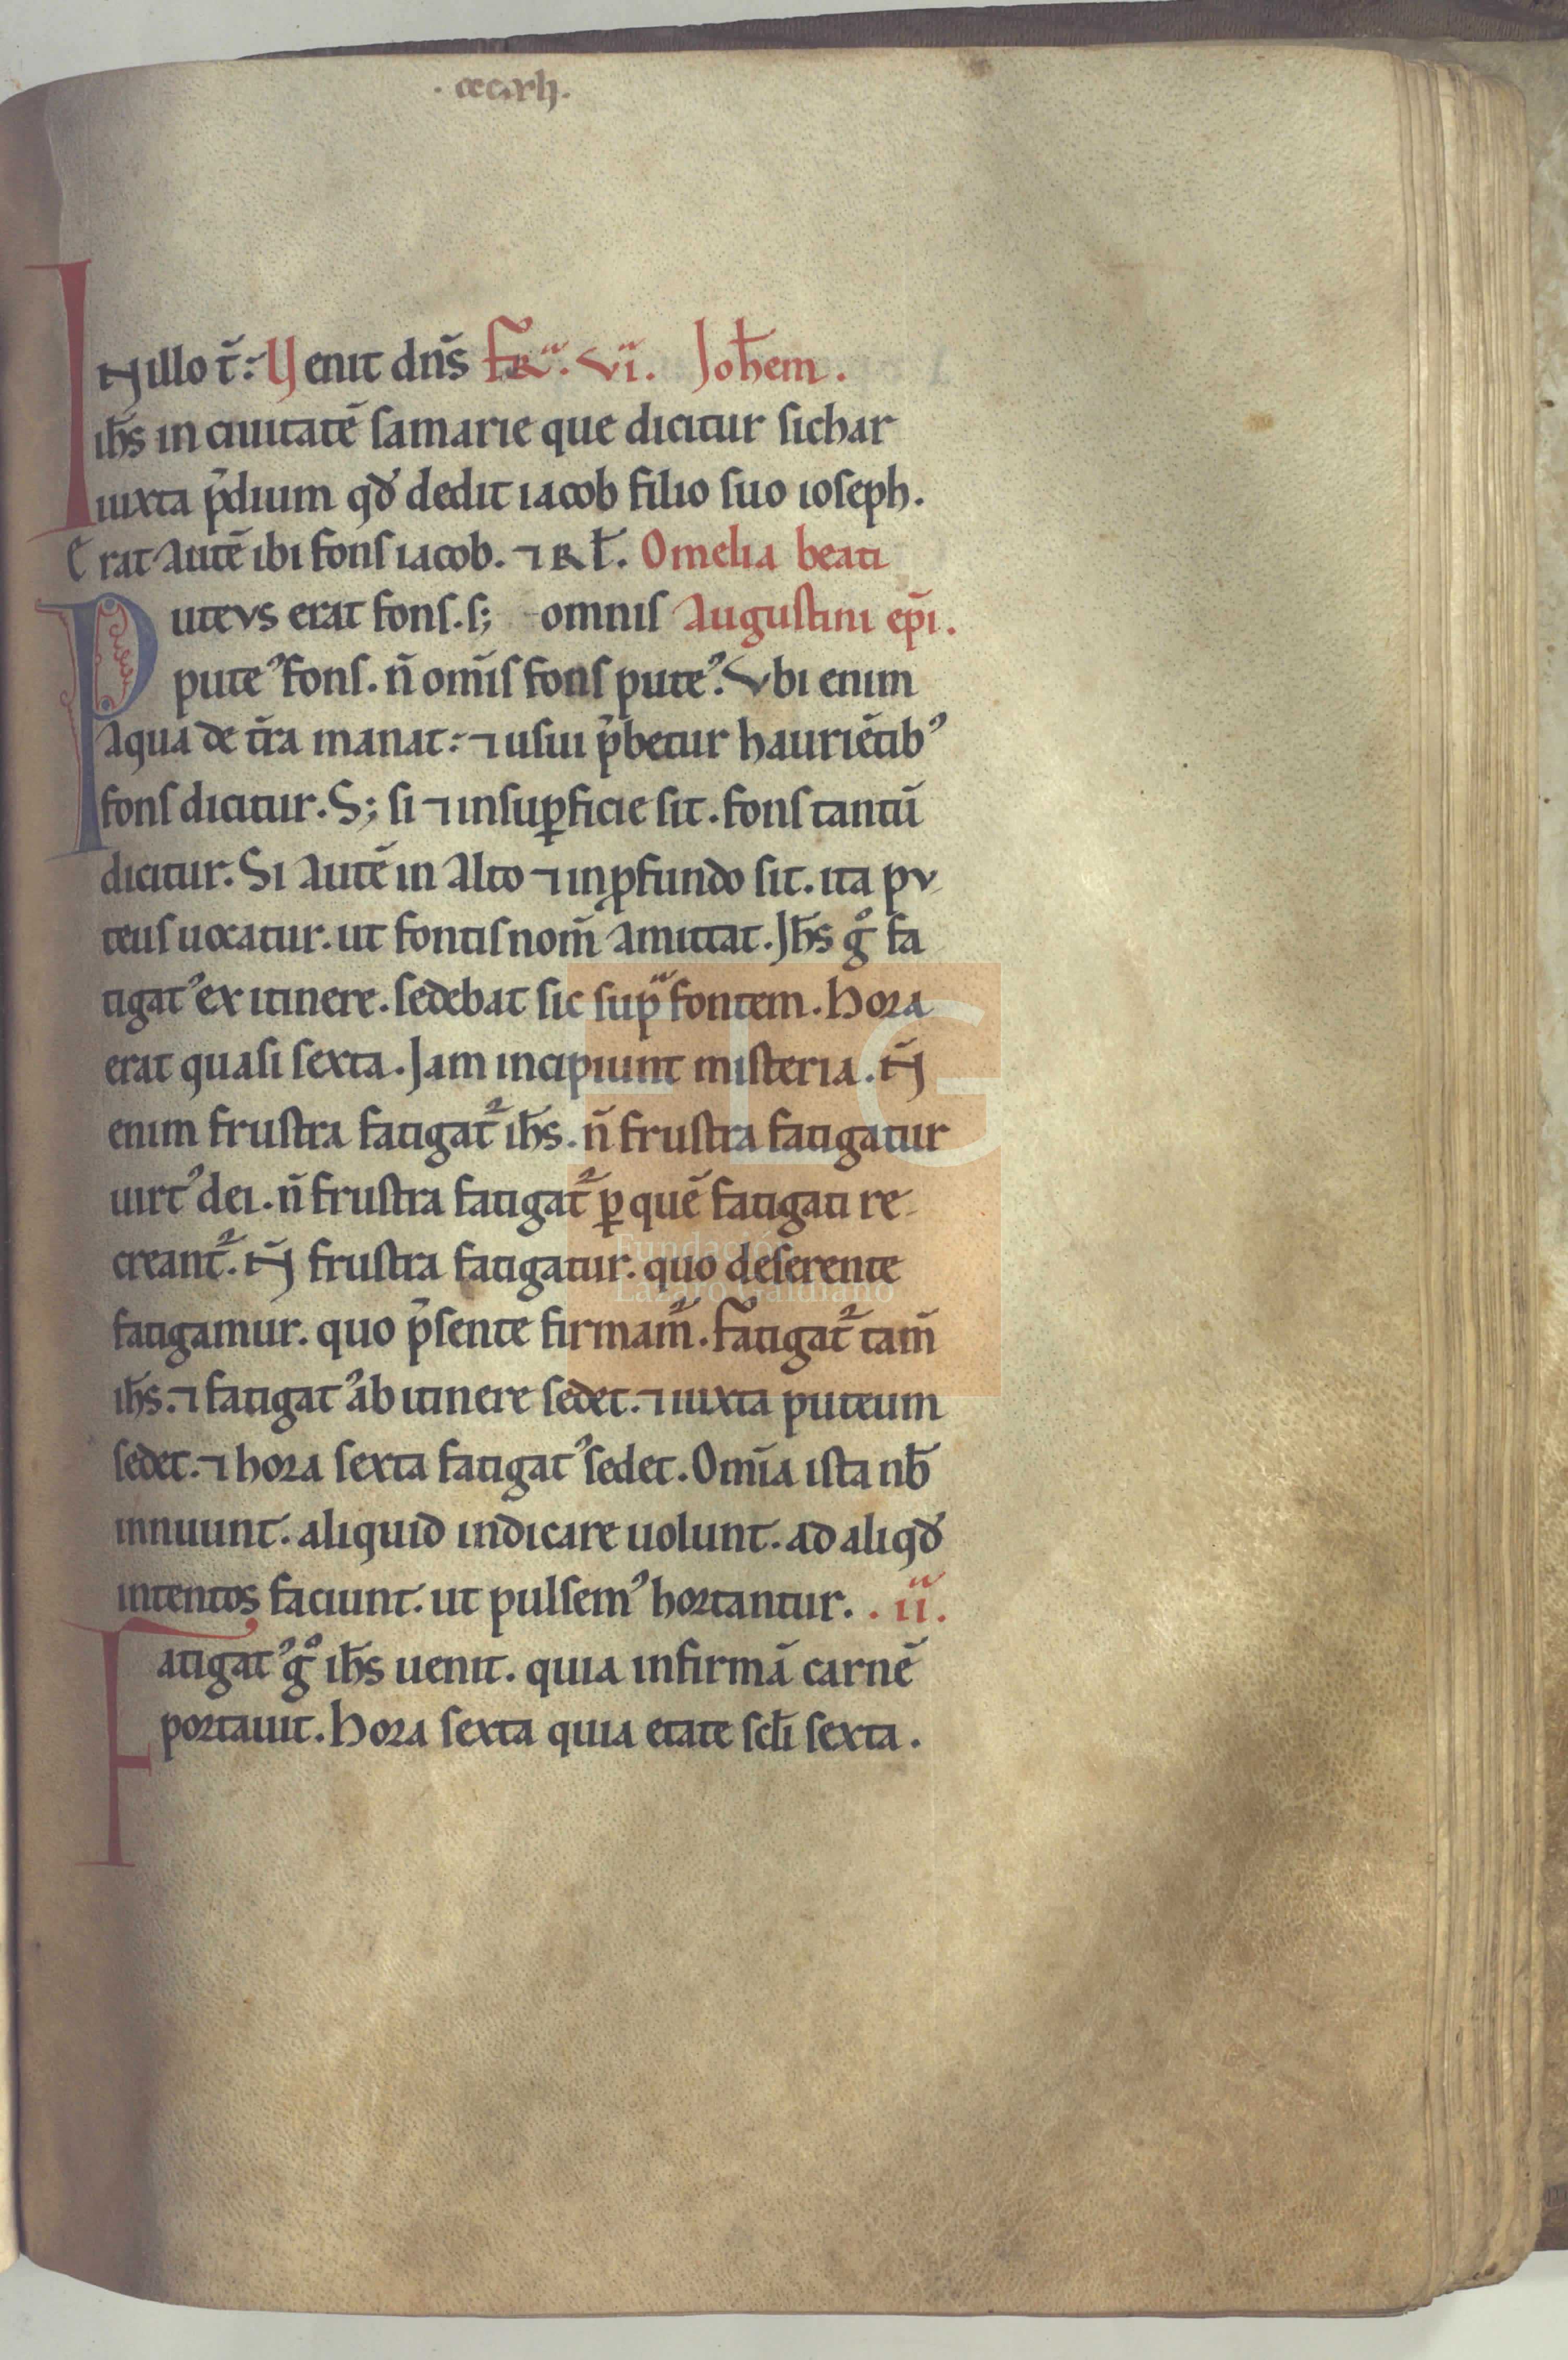 IN illo t̄: Venit dn̄s FR̄ª. VI. Joh̄em.
ih̄s in ciuitatē samarie que dicitur sichar
iuxta p̄dium qđ dedit iacob filio suo ioseph.
Erat autē ibi fons iacob. ⁊ Rł. Omelia beati
Puteus erat fons. s; omnis Augustini ep̄i.
puteꝰ fons. n̄ om̄is fons puteꝰ. Vbi enim
aqua de t̄ra manat: ⁊ usui p̄betur hauriētibꝰ
fons dicitur. S; si ⁊ in suꝑficie sit. fons tantū
dicitur. Si autē in alto ⁊ in ꝓfundo sit. ita pu-
teus uocatur. ut fontis nom̄ amittat. Jh̄s gͦ fa
tigatꝰ ex itinere. sedebat sic supᵃ fontem. Hora
erat quasi sexta. Jam incipiunt misteria. N̄
enim frustra fatigat᷑ ih̄s. n̄ frustra fatigatur
uirtꝰ dei. n̄ frustra fatigat᷑ ꝑ quē fatigati re-
creant᷑. N̄ frustra fatigatur. quo deserente
fatigamur. quo p̄sente firmam᷑. Fatigat᷑ tam̄
ih̄s. ⁊ fatigatꝰ ab itinere sedet. ⁊ iuxta puteum
sedet. ⁊ hora sexta fatigatꝰ sedet. Om̄ia ista nb̄
innuunt. aliquid indicare uolunt. ad aliqđ
intentos faciunt. ut pulsemꝰ hortantur. . ii.
Fatigatꝰ gͦ ih̄s uenit. quia infirmā carnē
portauit. Hora sexta quia etate scłi sexta.
Fundación
Lázaro Galdiano